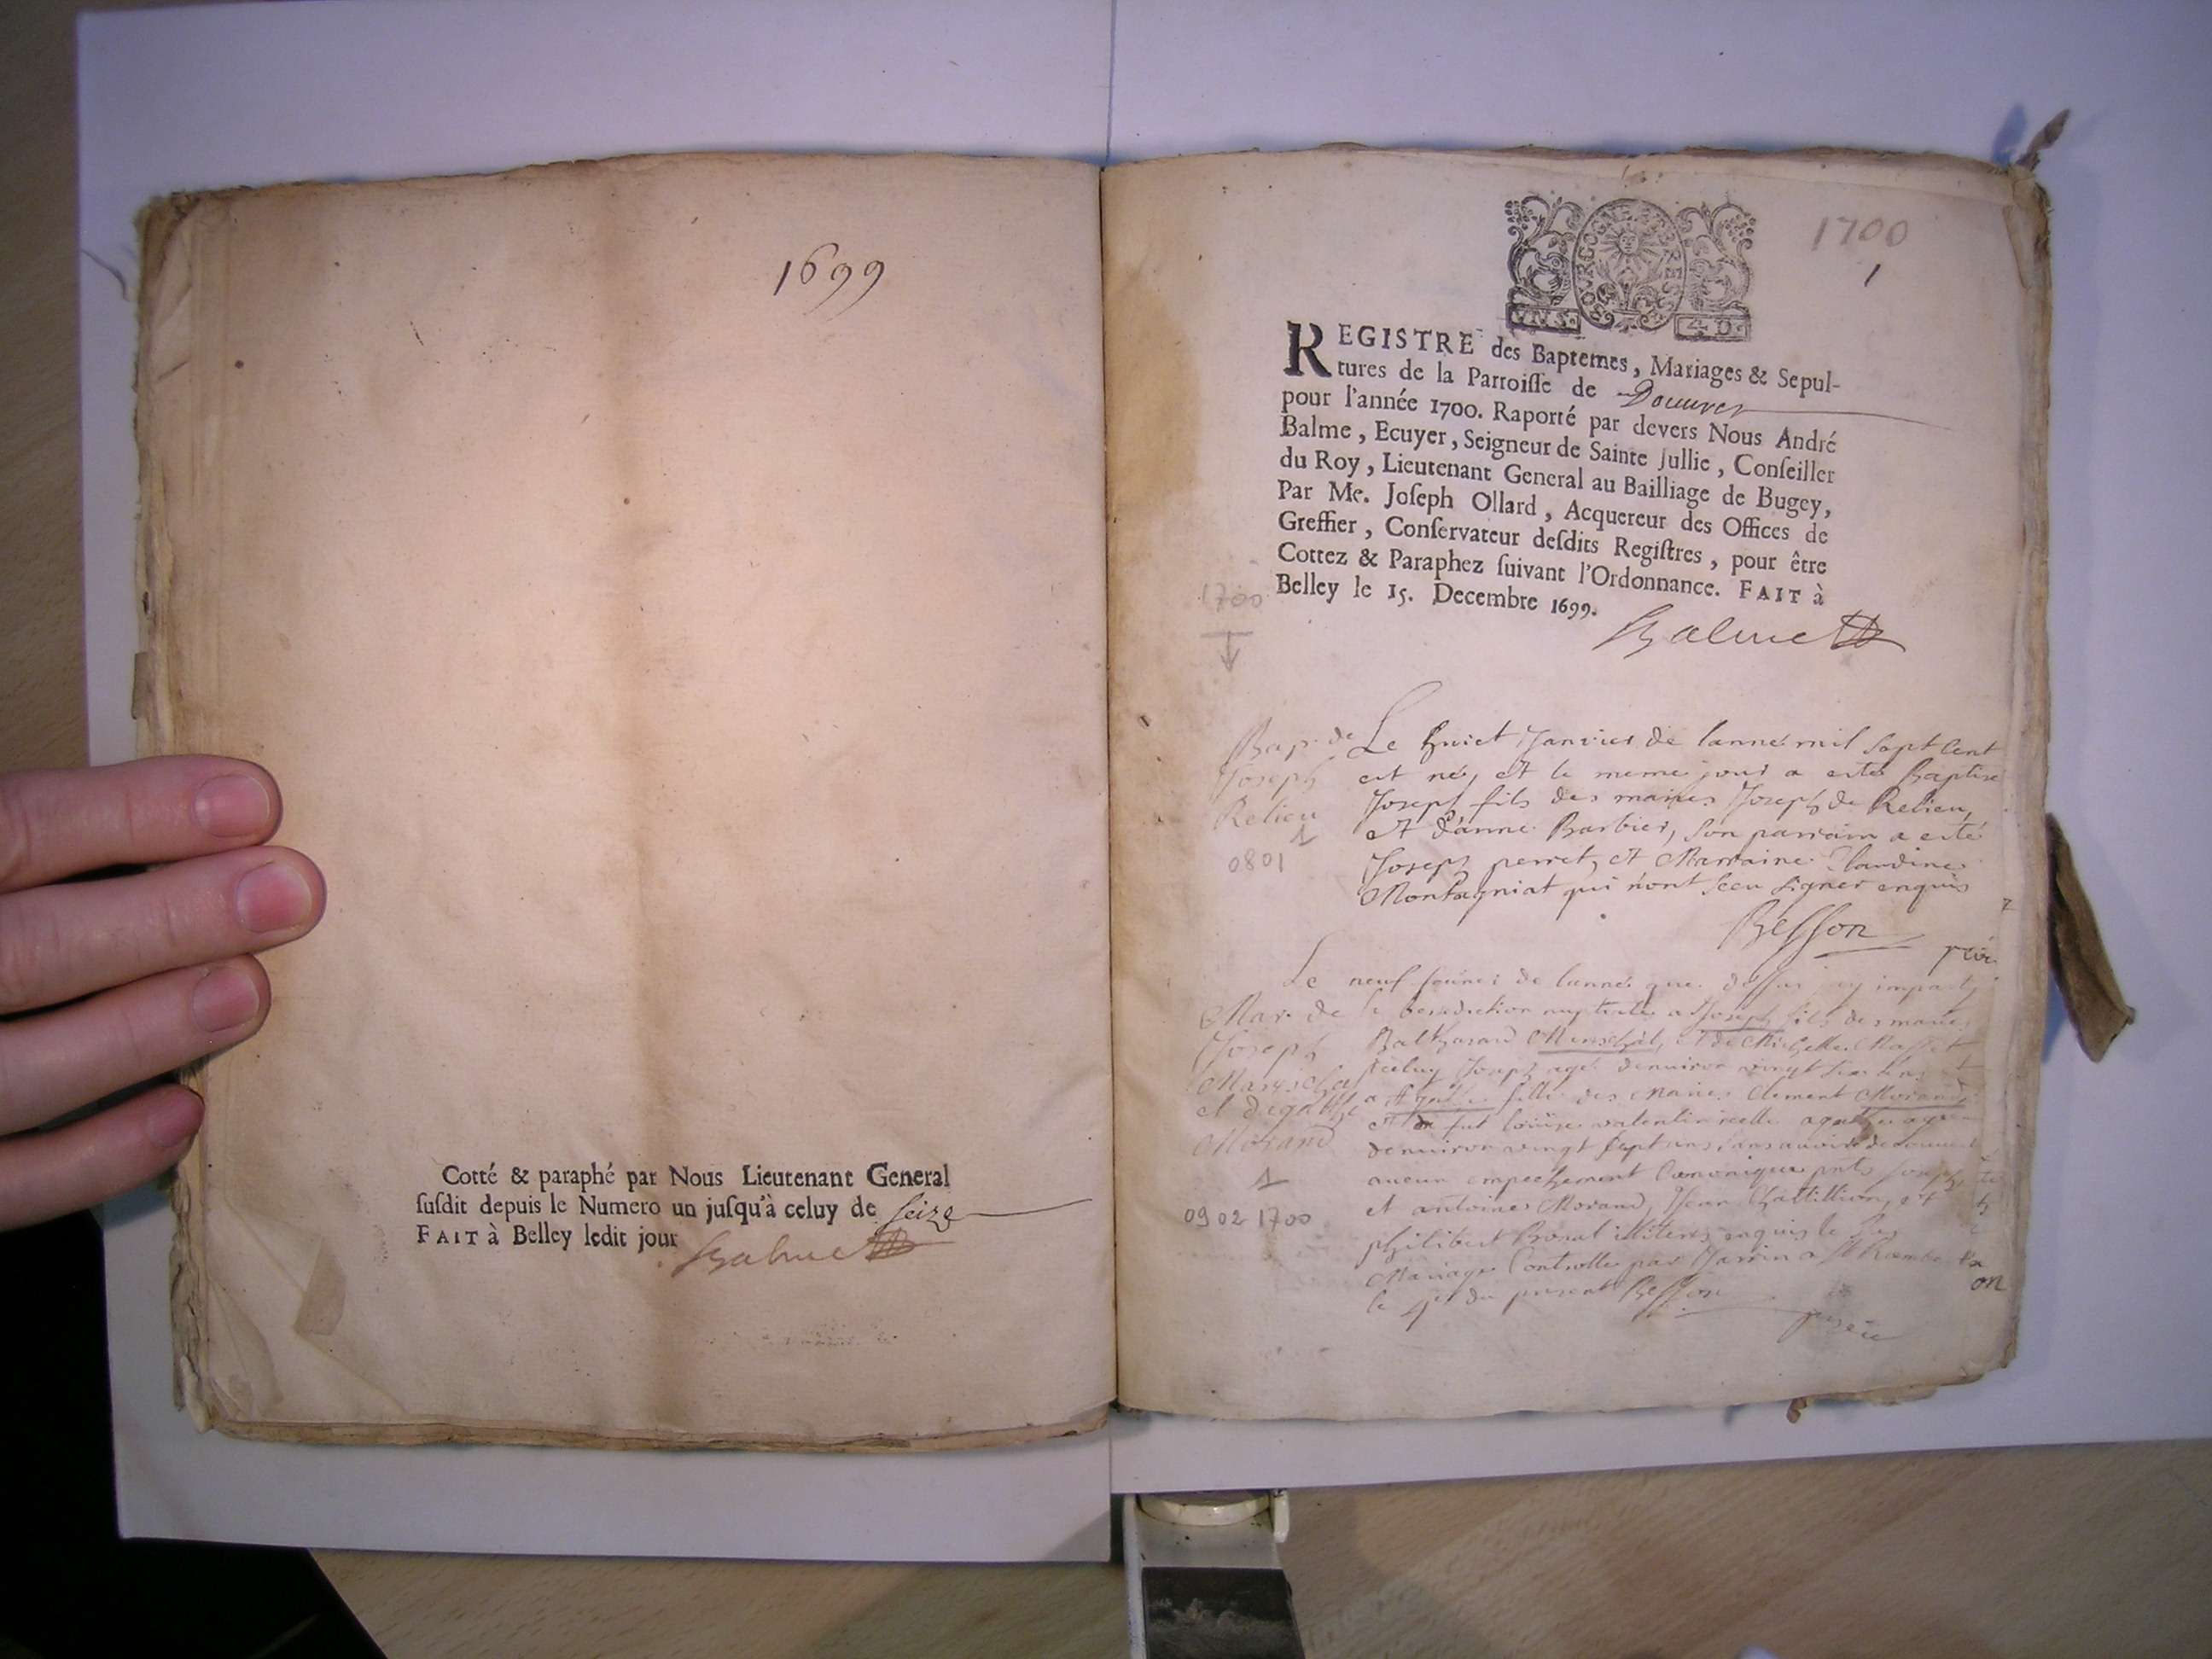 1699
Cotté & paraphé par Nous Lieutenant General
susdit depuis le Numero un jusqu'à celuy de seize
FAIT à Belley ledit jour
Balme
1700
1
BOURGOGNE
4 D.
REGISTRE des Baptemes, Mariages & Sepul-
tures de la Parroisse de Douures
pour l'année 1700. Raporté par devers Nous André
Balme, Ecuyer, Seigneur de Sainte Jullie, Conseiller
du Roy, Lieutenant General au Bailliage de Bugey,
Par Me. Joseph Ollard, Acquereur des Offices de
Greffier, Conservateur desdits Registres, pour être
Cottez & Paraphez suivant l'Ordonnance. FAIT à
Belley le 15. Decembre 1699.
Balme
1700
Bap. de
Joseph
Relieu
1
0801
Le huict Janvier de lanné mil sept Cent
est né, et le meme jour a esté Baptisé
Joseph fils des mariés Joseph de Relieu,
et d'anne Barbier, son parrain a esté
Joseph perret, et Marraine Claudine
Montagniat qui n'ont sceu signer enquis
Besson
Mar. de
Joseph
et dagathe
Morand
1
09 02 1700
Le neuf feurier de lanné que dessus jay imparty
la benediction nuptiale a Joseph fils des mariés
Balthasard et de Michelle
iceluy Joseph agé denuiron vingt six ans
a Agathe fille des mariés Clement Morand
et fut Louise valentin icelle agathe
denuiron vingt sept ans, sans auoir decouuert
aucun empechement Canonique pnts Joseph
et antoine Morand, Jean Chastillion, et
philibert Bonat illiteres enquis le
Mariage Controllé par Jarrin a St Rambert
le du present Besson
on